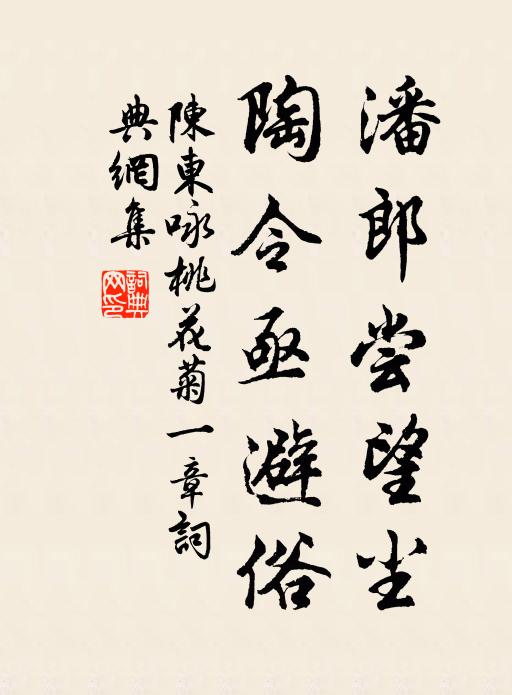 潘郎尝望尘
陶令亟避俗
陳東咏桃花菊一章詞
典網集
詞典網印